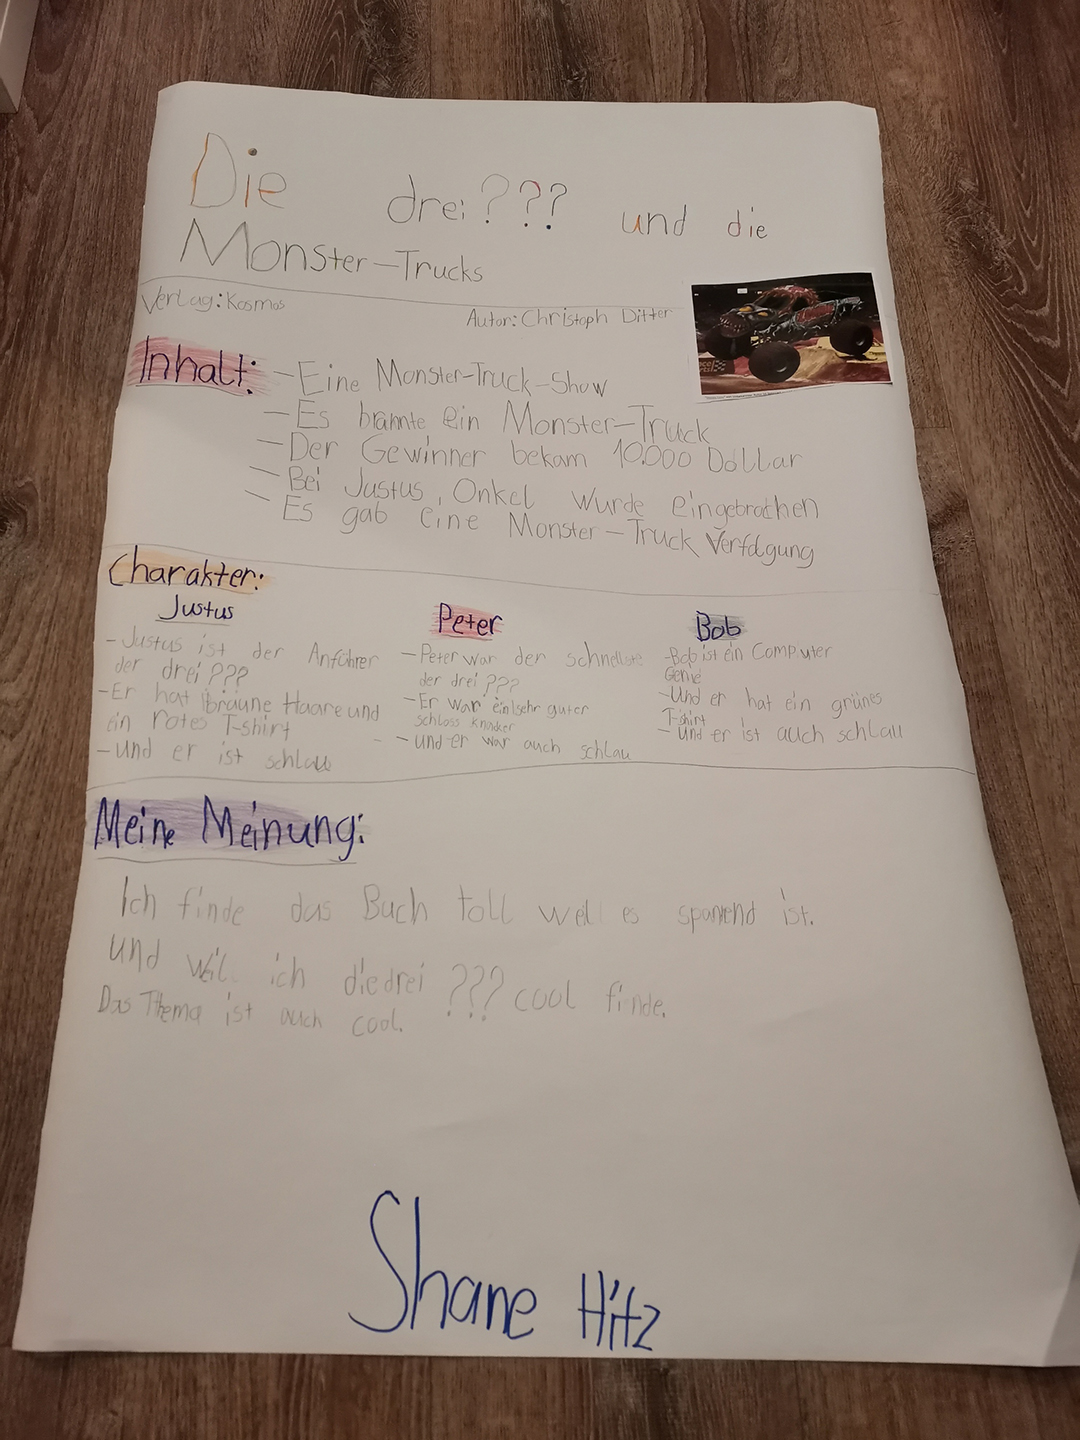 Die drei ??? und die
Monster-Trucks
Verlag: Kosmos
Autor: Christoph Ditter
Inhalt:
- Eine Monster-Truck-Show
- Es brannte ein Monster-Truck
- Der Gewinner bekam 10.000 Dollar
- Bei Justus, Onkel wurde eingebrochen
- Es gab eine Monster-Truck Verfolgung
Charakter:
Justus
- Justus ist der Anführer
der drei ???
- Er hat braune Haare und
ein rotes T-shirt
- und er ist schlau
Peter
- Peter war der schnellste
der drei ???
- Er war ein sehr guter
schloss knacker
- und er war auch schlau
Bob
- Bob ist ein Computer
Genie
- Und er hat ein grünes
T-shirt
- und er ist auch schlau
Meine Meinung:
Ich finde das Buch toll weil es spannend ist.
und weil ich die drei ??? cool finde.
Das Thema ist auch cool.
Shane Hitz